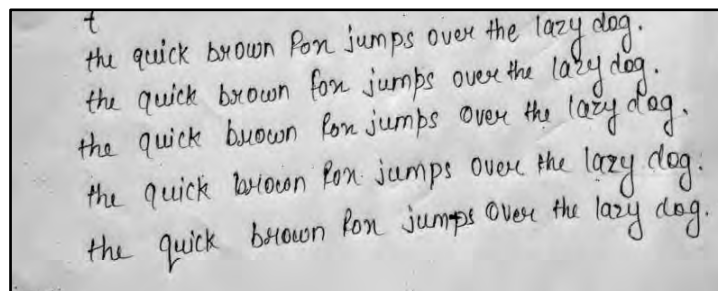 t
the quick brown fox jumps over the lazy dog.
the quick brown fox jumps over the lazy dog.
the quick brown fox jumps over the lazy dog.
the quick brown fox jumps over the lazy dog.
the quick brown fox jumps over the lazy dog.